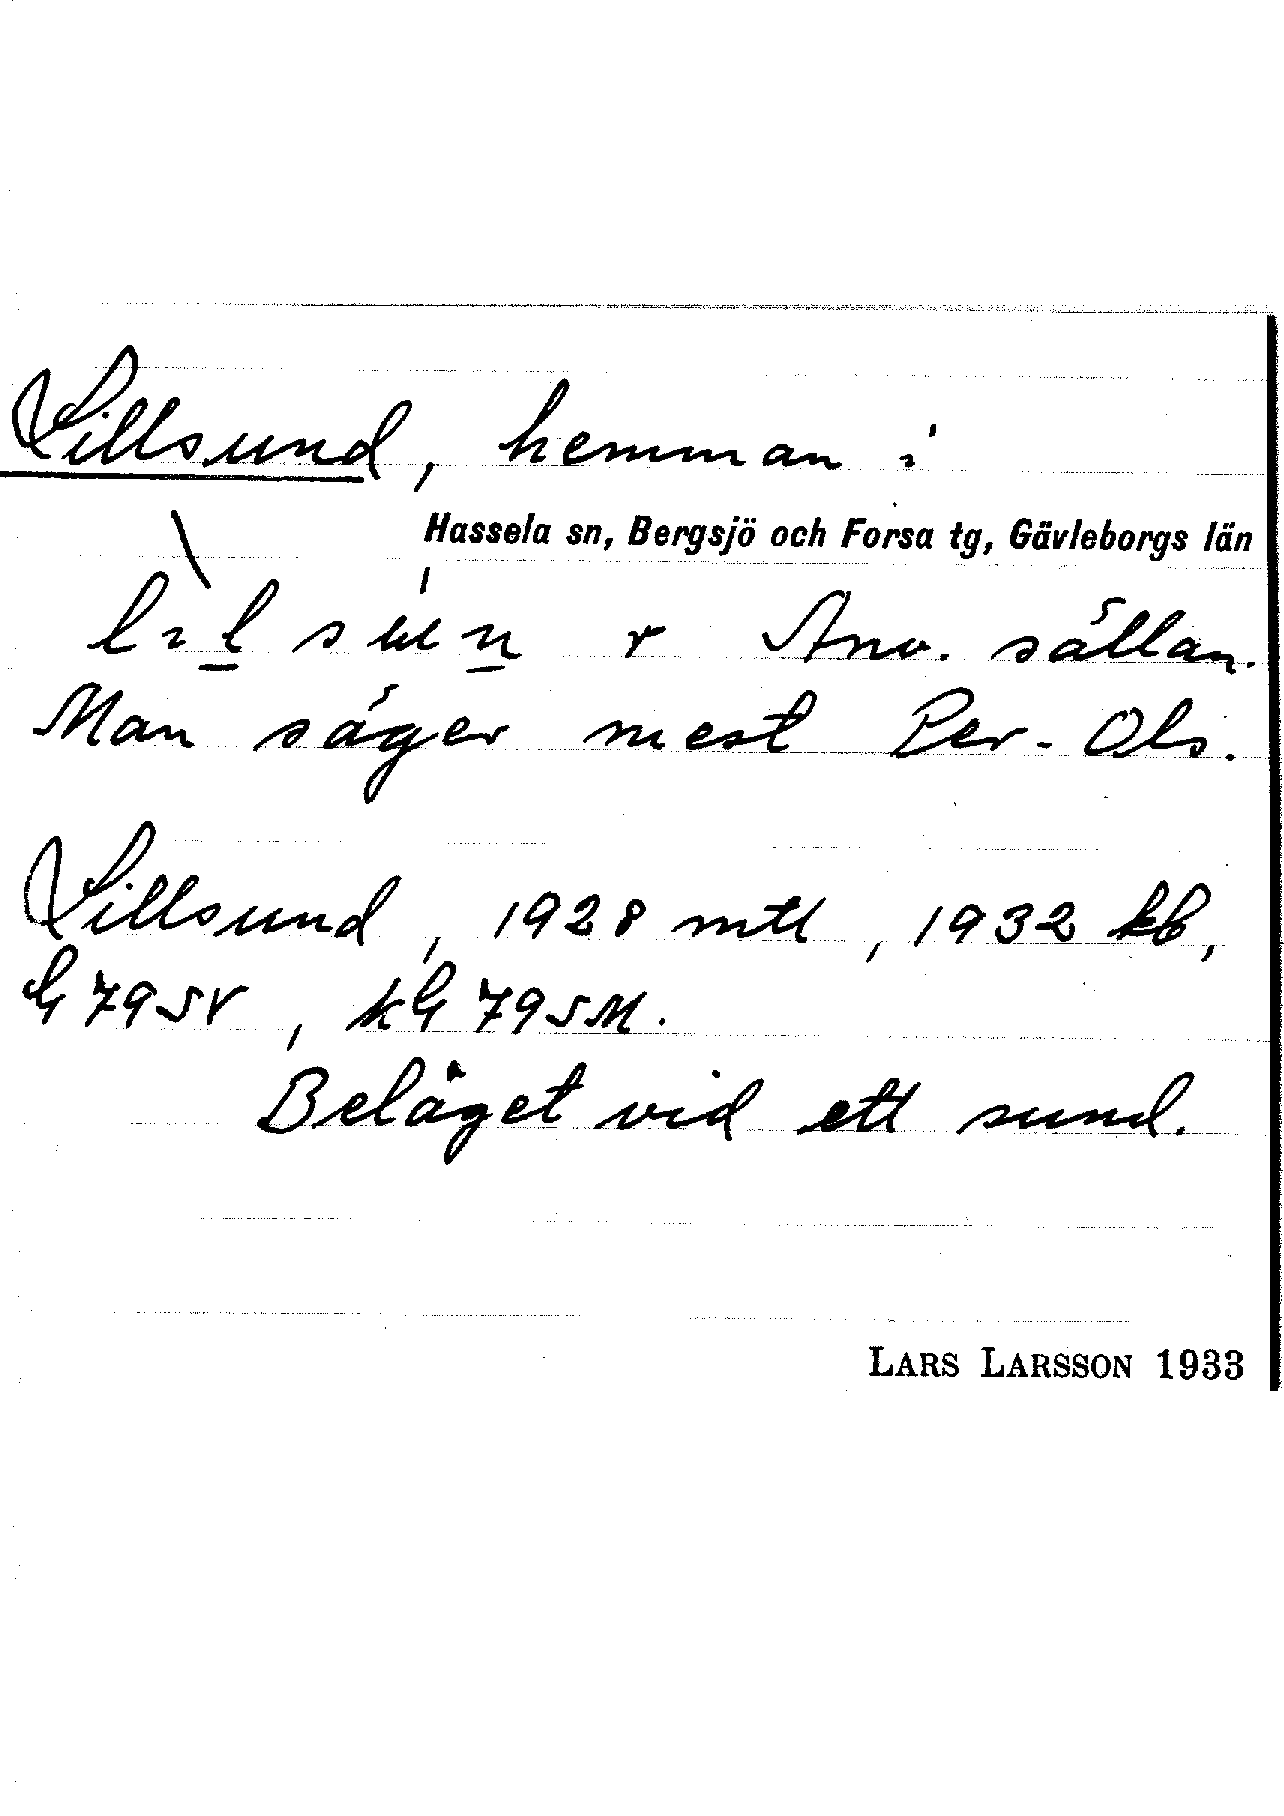 Lillsund, hemman i
Hassela sn, Bergsjö och Forsa tg, Gävleborgs län
Anv. sällan.
Man säger mest Per-Ols.
Lillsund, 1928 mtl, 1932 kb,
Beläget vid ett sund.
LARS LARSSON 1933